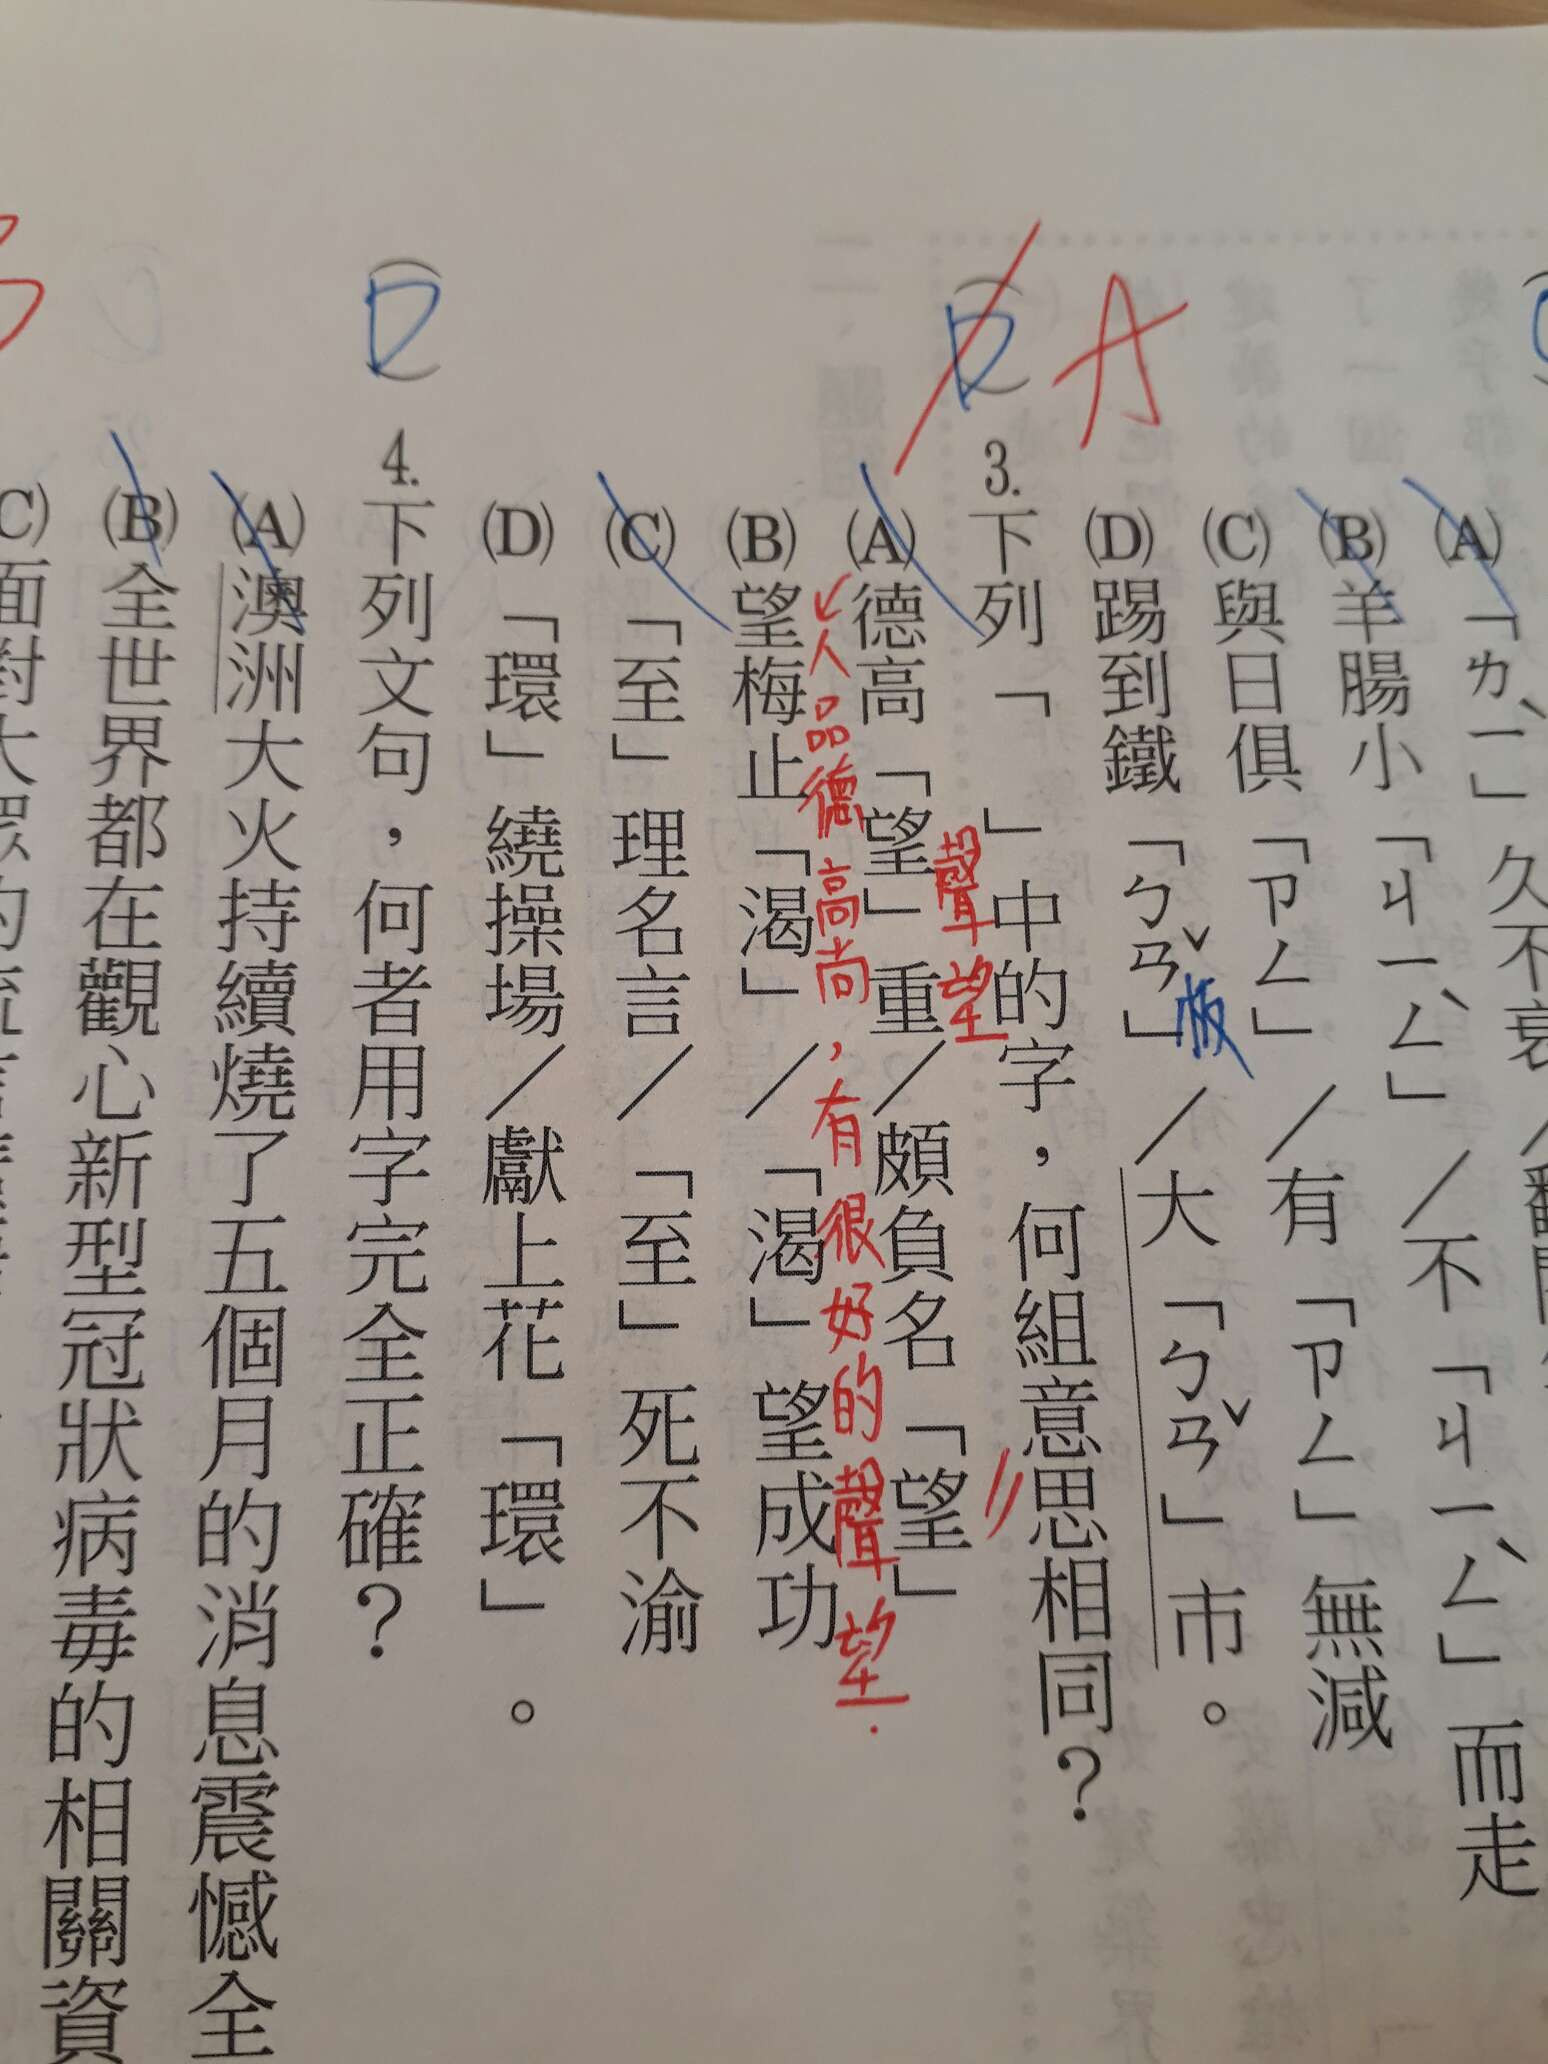 (A)「ㄌㄧˋ」久不衰／翻
(B)羊腸小「ㄐㄧㄥˋ」／不「ㄐㄧㄥˋ」而走
(C)與日俱「ㄗㄥ」／有「ㄗㄥ」無減
(D)踢到鐵「ㄅㄢˇ」／大「ㄅㄢˇ」市。
板
(D) A
3.下列「　」中的字，何組意思相同？
聲望
(A)德高「望」重／頗負名「望」
人品德高尚，有很好的聲望.
(B)望梅止「渴」／「渴」望成功
(C)「至」理名言／「至」死不渝
(D)「環」繞操場／獻上花「環」。
(D)
4.下列文句，何者用字完全正確？
(A)澳洲大火持續燒了五個月的消息震憾全
(B)全世界都在觀心新型冠狀病毒的相關資
(C)面對大眾的